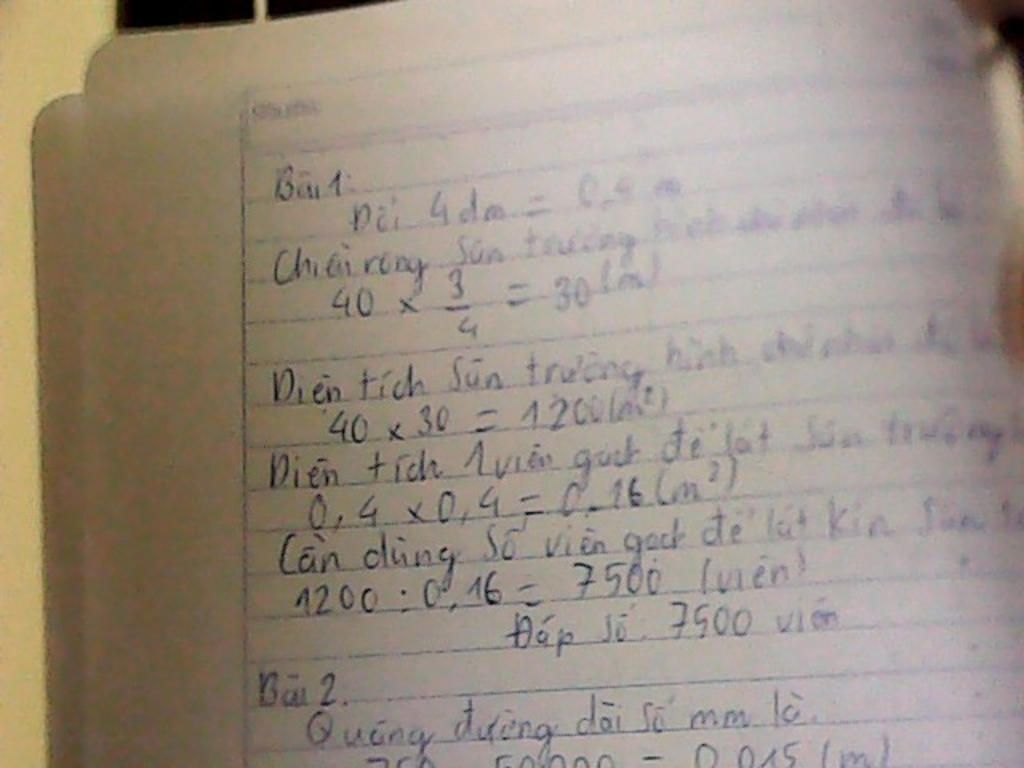 Bài 1:
Đổi 4dm = 0,4 m
Chiều rộng sân trường hình chữ nhật đó là
40 × 3/4 = 30 (m)
Diện tích sân trường hình chữ nhật đó là
40 × 30 = 1200 (m²)
Diện tích 1 viên gạch để lát sân trường
0,4 × 0,4 = 0,16 (m²)
Cần dùng số viên gạch để lát kín sân
1200 : 0,16 = 7500 (viên)
Đáp số: 7500 viên
Bài 2.
Quãng đường dài số mm là.
750 50000 = 0,015 (m)